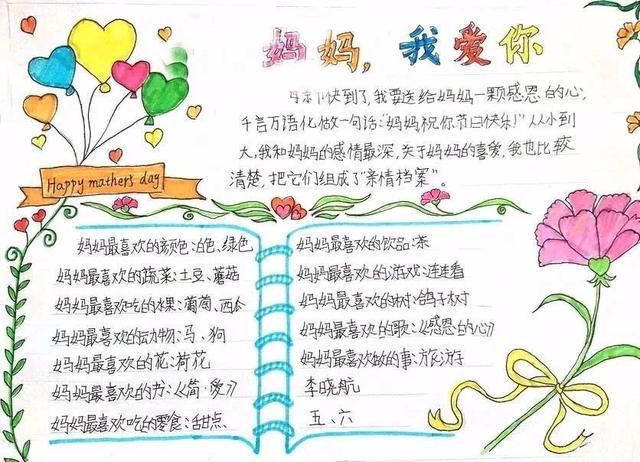 妈妈，我爱你
快到了，我要送给妈妈一颗感恩的心，
千言万语化做一句话:“妈妈祝你节日快乐！”从小到
大，我和妈妈的感情最深，关于妈妈的喜爱，我也比较
清楚，把它们组成了“亲情档案”。
Happy mathers day
妈妈最喜欢的颜色:白色、绿色
妈妈最喜欢的蔬菜:土豆、蘑菇
妈妈最喜欢吃的水果:葡萄、西瓜
妈妈最喜欢的动物:马、狗
妈妈最喜欢的花:荷花
妈妈最喜欢的书:《简·爱》
妈妈最喜欢吃的零食:甜点
妈妈最喜欢的饮品:茶
妈妈最喜欢的游戏:连连看
妈妈最喜欢的树:鸽子树
妈妈最喜欢的歌:《感恩的心》
妈妈最喜欢做的事:旅游
李晓航
五、六